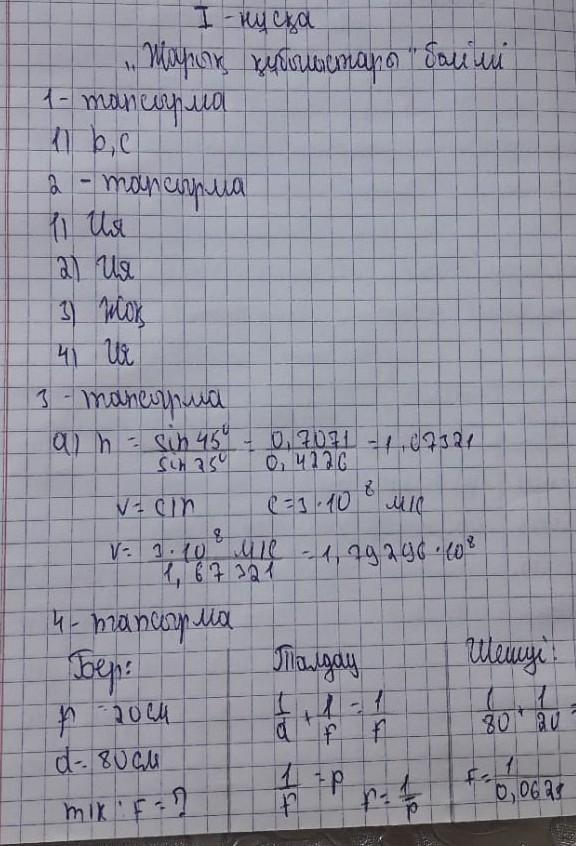 I - нұсқа
„Жарық құбылыстары" бөлімі
1 - тапсырма
1) b, c
2 - тапсырма
1) Ия
2) Ия
3) Жоқ
4) Ия
3 - тапсырма
а) n = sin 45° / sin 25° = 0,7071 / 0,4226 = 1,67321
v = c/n   c = 3·10⁸ м/с
v = 3·10⁸ м/с / 1,67321 = 1,79296·10⁸
4 - тапсырма
Бер:   Талдау   Шешуі:
F = 20см   1/d + 1/f = 1/F   1/80 + 1/20 =
d = 80см
т/к: F = ?   1/F = p   F = 1/p   F = 1/0,0625